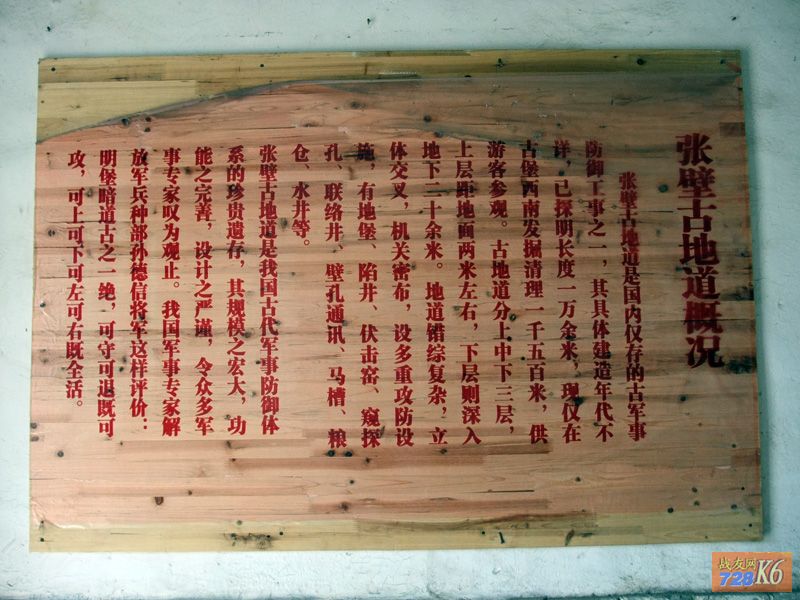 张壁古地道概况
张壁古地道是国内仅存的古军事
防御工事之一，其具体建造年代不
详，已探明长度一万余米，现仅在
古堡西南发掘清理一千五百米，供
游客参观。古地道分上中下三层，
上层距地面两米左右，下层则深入
地下二十余米。地道错综复杂，立
体交叉，机关密布，设多重攻防设
施，有地堡、陷井、伏击窑、窥探
孔、联络井、壁孔通讯、马槽、粮
仓、水井等。
张壁古地道是我国古代军事防御体
系的珍贵遗存，其规模之宏大，功
能之完善，设计之严谨，令众多军
事专家叹为观止。我国军事专家解
放军兵种部孙德信将军这样评价：
明堡暗道古之一绝，可守可退既可
攻，可上可下可左可右既全活。
战友网
728K6